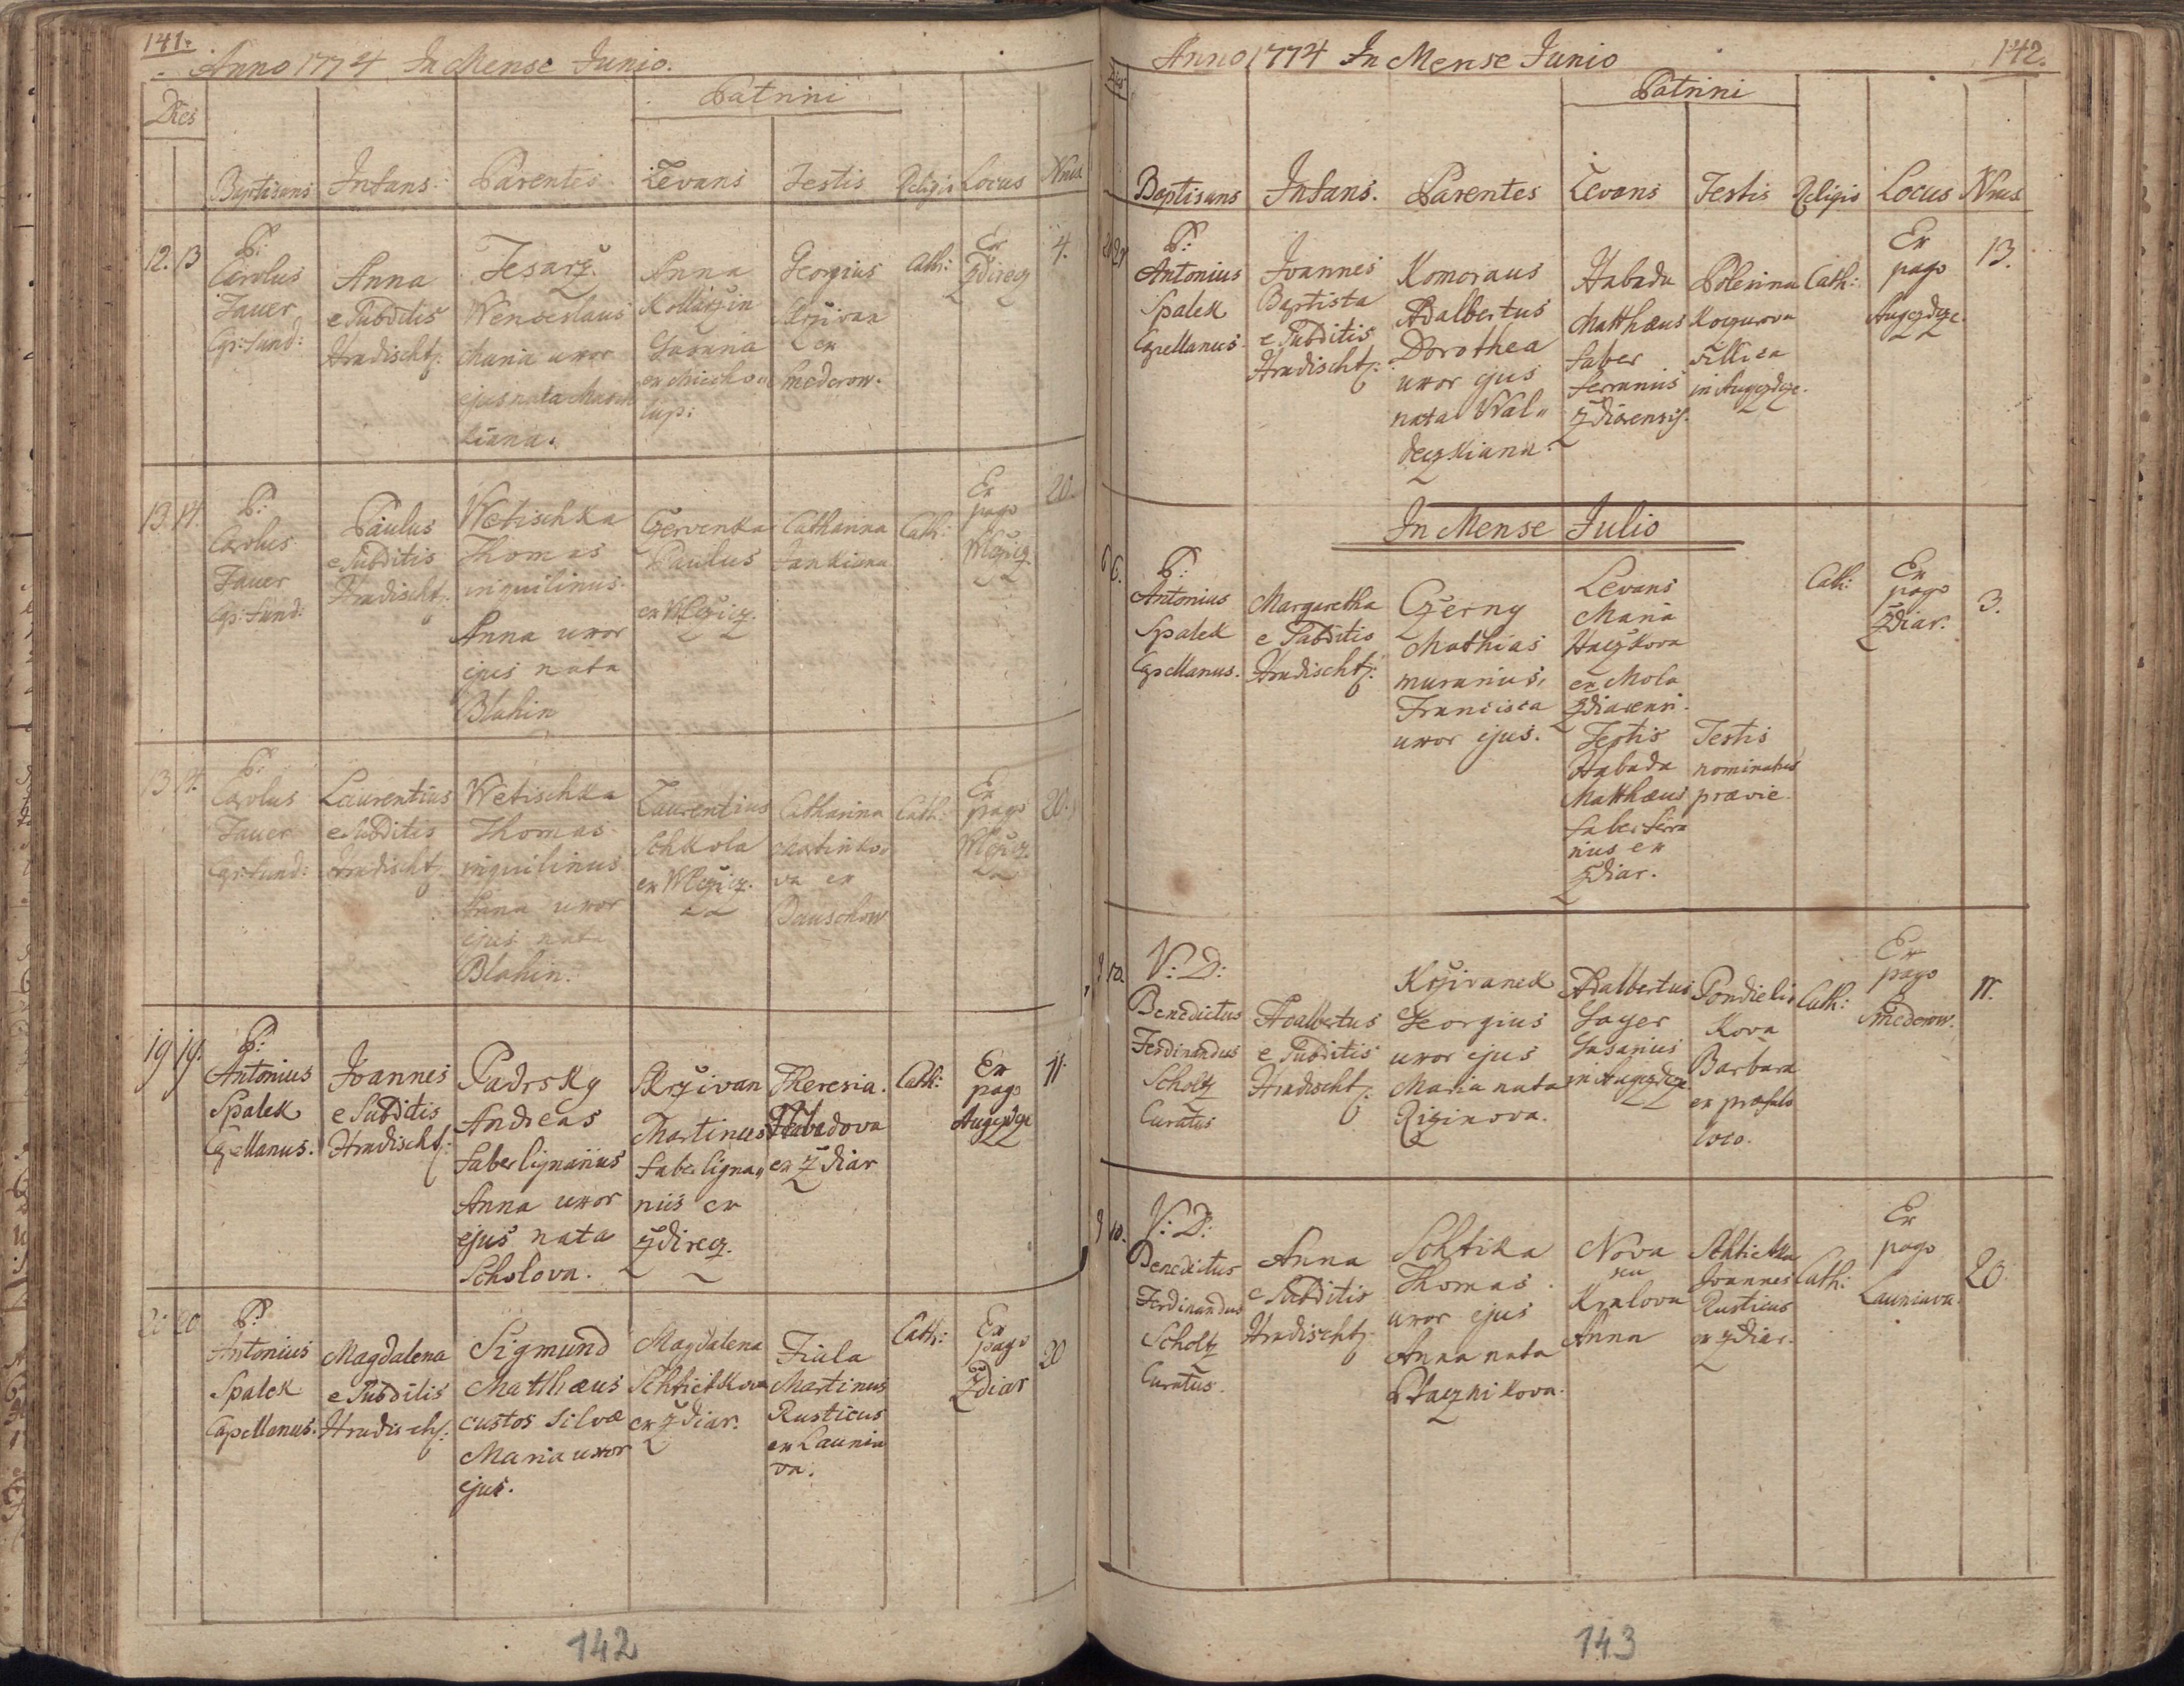 141.
Anno 1774 In Mense Junio.
Dies
Patrini
Baptisans Infans. Parentes Levans Testis Religio Locus Nrus
12. 13
P:
Carolus
Jauer
Cap: fund:
Anna
e Subditis
Hradischt:
Tesarž.
Wenceslaus
Maria uxor
ejus nata
kiana.
Anna
Kollaržin
Georgius
Skrživan
ex
Smederow.
Cath:
Ex
Zdirecz
4.
13. 14.
P:
Carolus
Jauer
Cap: fund:
Paulus
e Subditis
Hradischt:
Wetischka
Thomas
inquilinus.
Anna uxor
ejus nata
Blahin
Czervenka
Paulus
ex Wlczicz.
Catharina
Jankiana
Cath:
Ex
pago
Wlczicz.
20.
13 14.
P:
Carolus
Jauer
Cap: fund:
Laurentius
e Subditis
Hradischt:
Wetischka
Thomas
inquilinus
Anna uxor
ejus nata
Blahin.
Laurentius
Schkola
ex Wlczicz.
Catharina
Martinko„
va ex
Dauschow
Cath:
Ex
pago
Wlczicz.
20.
19 19.
P:
Antonius
Spalek
Capellanus.
Joannes
e Subditis
Hradischt:
Padrsky
Andreas
faber lignarius
Anna uxor
ejus nata
Scholova.
Skrživan
Martinus
faber ligna„
rius ex
Zdirecz.
Theresia.
Habadova
ex Zdiar
Cath:
Ex
pago
Augezdze
11.
20 20
P:
Antonius
Spalek
Capellanus.
Magdalena
e Subditis
Hradischt:
Sigmund
Matthæus
custos silvæ
Maria uxor
ejus.
Magdalena
Schtietkova
ex Zdiar.
Fiala
Martinus
Rusticus
ex Launio
va.
Cath:
Ex
pago
Zdiar
20
142
Anno 1774 In Mense Junio
142.
Dies
Patrini
Baptisans Infans. Parentes Levans Testis Religio Locus Nrus
P:
Antonius
Spalek
Capellanus.
Joannes
Baptista
e Subditis
Hradischt:
Komoraus
Adalbertus
Dorothea
uxor ejus
nata Wal„
deczkiana.
Habada
Matthæus
faber
ferrarius
Zdiarensis.
Polexina
Koczurova
in Augezdze.
Cath:
Ex
pago
Augezdze.
13.
In Mense Julio
6 6.
P:
Antonius
Spalek
Capellanus.
Margaretha
e Subditis
Hradischt:
Czerny
Mathias
murarius,
Francisca
uxor ejus.
Levans
Maria
Haczkova
ex Mola
Zdiarensi.
Testis
Habada
Matthæus
faber ferra
rius ex
Zdiar.
Testis
nominatus
prævie.
Cath:
Ex
pago
Zdiar.
3.
9 10.
V: D:
Benedictus
Ferdinandus
Scholtz
Curatus
Adalbertus
e Subditis
Hradischt:
Krživanek
Georgius
uxor ejus
Maria nata
Rizinova.
Adalbertus
Sayer
in Augezdze
Pondieli„
kova
Barbara
ex præfato
loco.
Cath:
Ex
pago
Smederow.
11.
9 10.
V: D:
Benedictus
Ferdinandus
Scholtz
Curatus.
Anna
e Subditis
Hradischt:
Schtika
Thomas.
uxor ejus
Anna nata
Ptacznikova.
Nova
seu
Kralova
Anna
Schtietka
Joannes
Rusticus
ex Zdiar.
Cath:
Ex
pago
Launiova.
20.
143